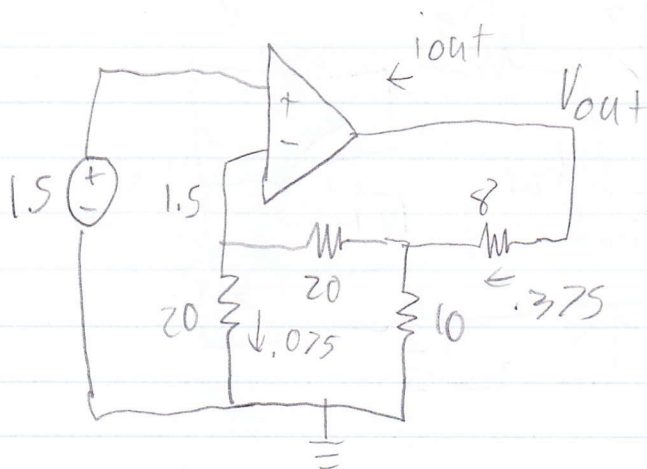 iout
←
Vout
+
-
+
-
1.5
1.5
8
20
←
.375
20
↓.075
10